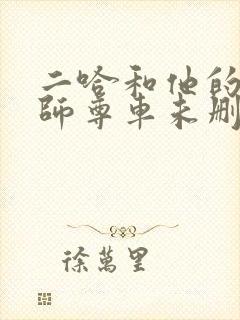 二哈和他的
師尊車未刪
徐萬里